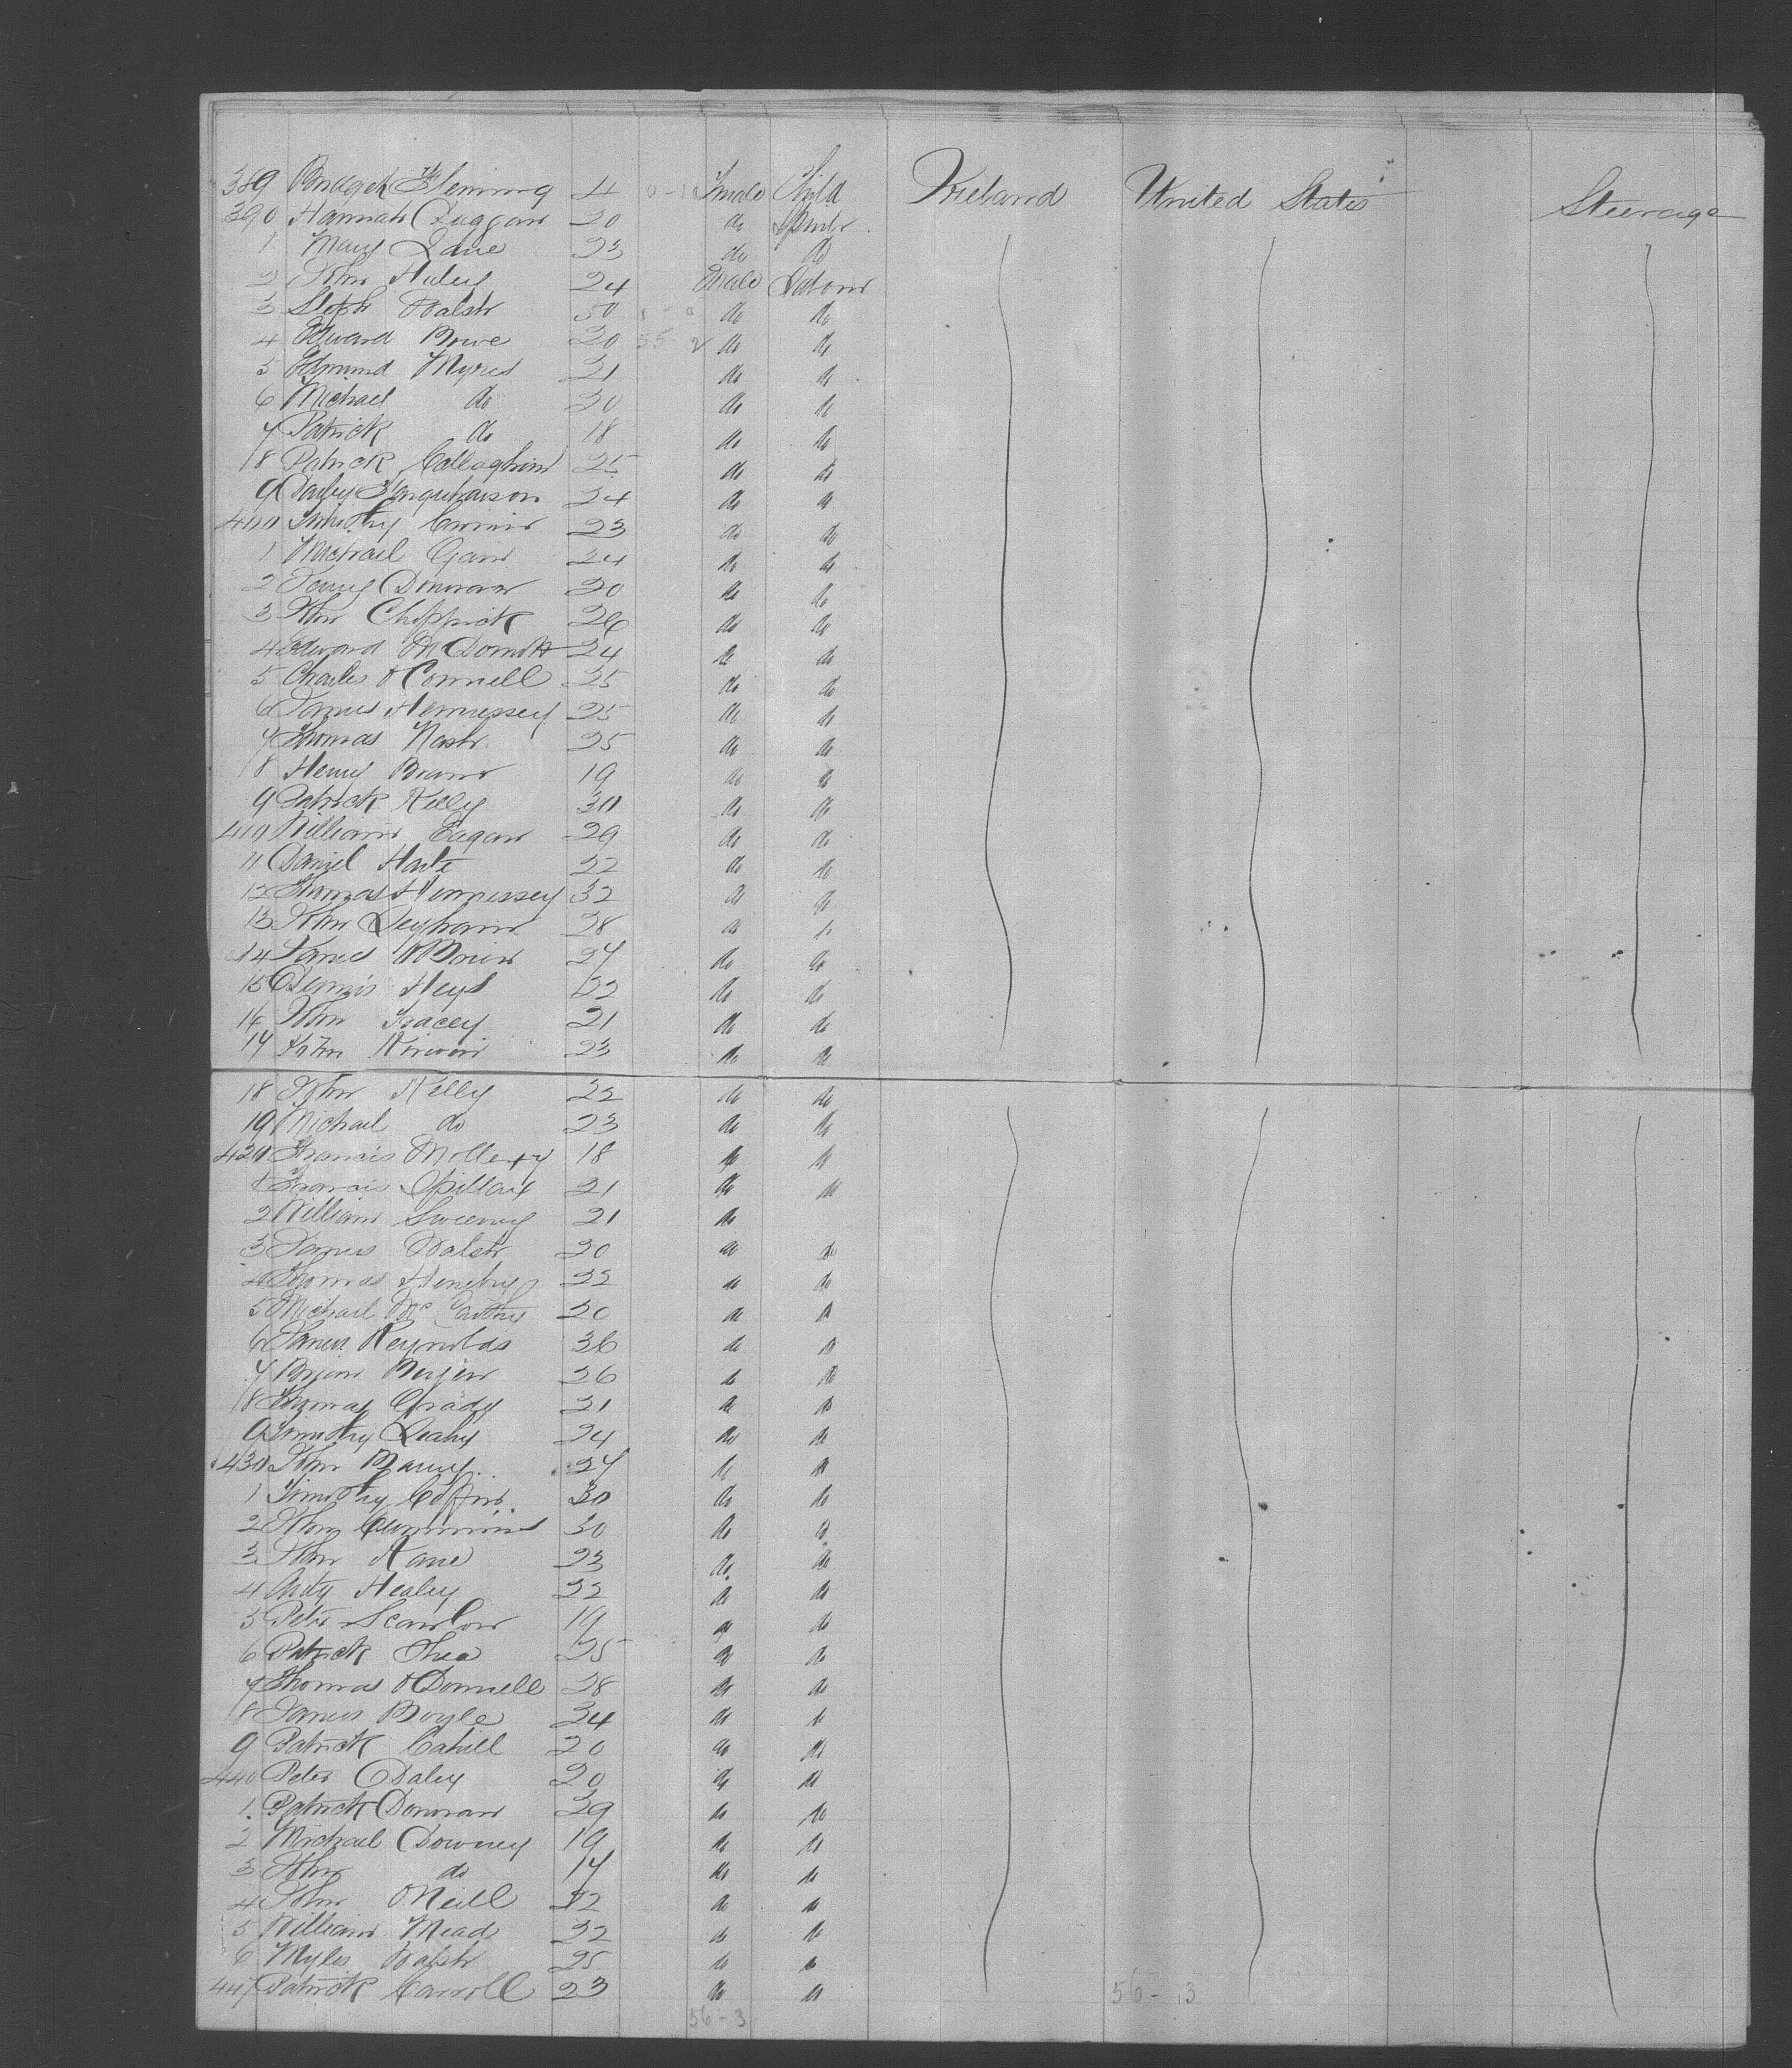 389 Bridget Fleming 4 0-1 Female Child Ireland United States Steerage
390 Hannah Duggan 20 do Spinstr
1 Mary Lane 23 do do
2 John Haley 24 Male Labour
3 Steph Walsh 50 1-0 do do
4 Edward Bowe 20 55-2 do do
5 Edmund Myres 21 do do
6 Michael do 20 do do
7 Patrick do 18 do do
8 Patrick Callaghan 25 do do
9 Farquharson 24 do do
400 Timothy 23 do do
1 Michael 24 do do
2 Donovan 20 do do
3 John 26 do do
4 Edward McDomott 24 do do
5 Charles O'Connell 25 do do
6 James Hennessey 25 do do
7 Thomas Nash 25 do do
8 Henry 19 do do
9 Patrick Kelly 30 do do
410 William Eagan 29 do do
11 Daniel Harte 22 do do
12 Thomas Hennessey 32 do do
13 John 28 do do
14 James O'Brien 27 do do
15 Dennis Heys 22 do do
16 John Tracey 21 do do
17 John Kirwin 23 do do
18 John Kelly 22 do do
19 Michael do 23 do do
420 Francis 18 do do
1 Francis 21 do do
2 William Sweeny 21 do
3 James Walsh 20 do do
4 Thomas Henebry 22 do do
5 Michael Mc Carthy 20 do do
6 James Reynolds 36 do do
7 26 do do
8 Thomas Grady 21 do do
9 Timothy Leahy 24 do do
430 John 27 do do
1 Timothy Coffin 30 do do
2 John Cummins 30 do do
3 John Kane 23 do do
4 Healey 22 do do
5 Peter Scanlon 19 do do
6 Patrick Shea 25 do do
7 Thomas O'Donnell 28 do do
8 James Boyle 34 do do
9 Patrick Cahill 20 do do
440 Peter Daley 20 do do
1 Patrick Donovan 39 do do
2 Michael Downey 19 do do
3 John do 17 do do
4 John O'Neill 22 do do
5 William Mead 22 do do
6 Myles Walsh 25 do do
447 Patrick Carroll 23 do do
56-3 56-13